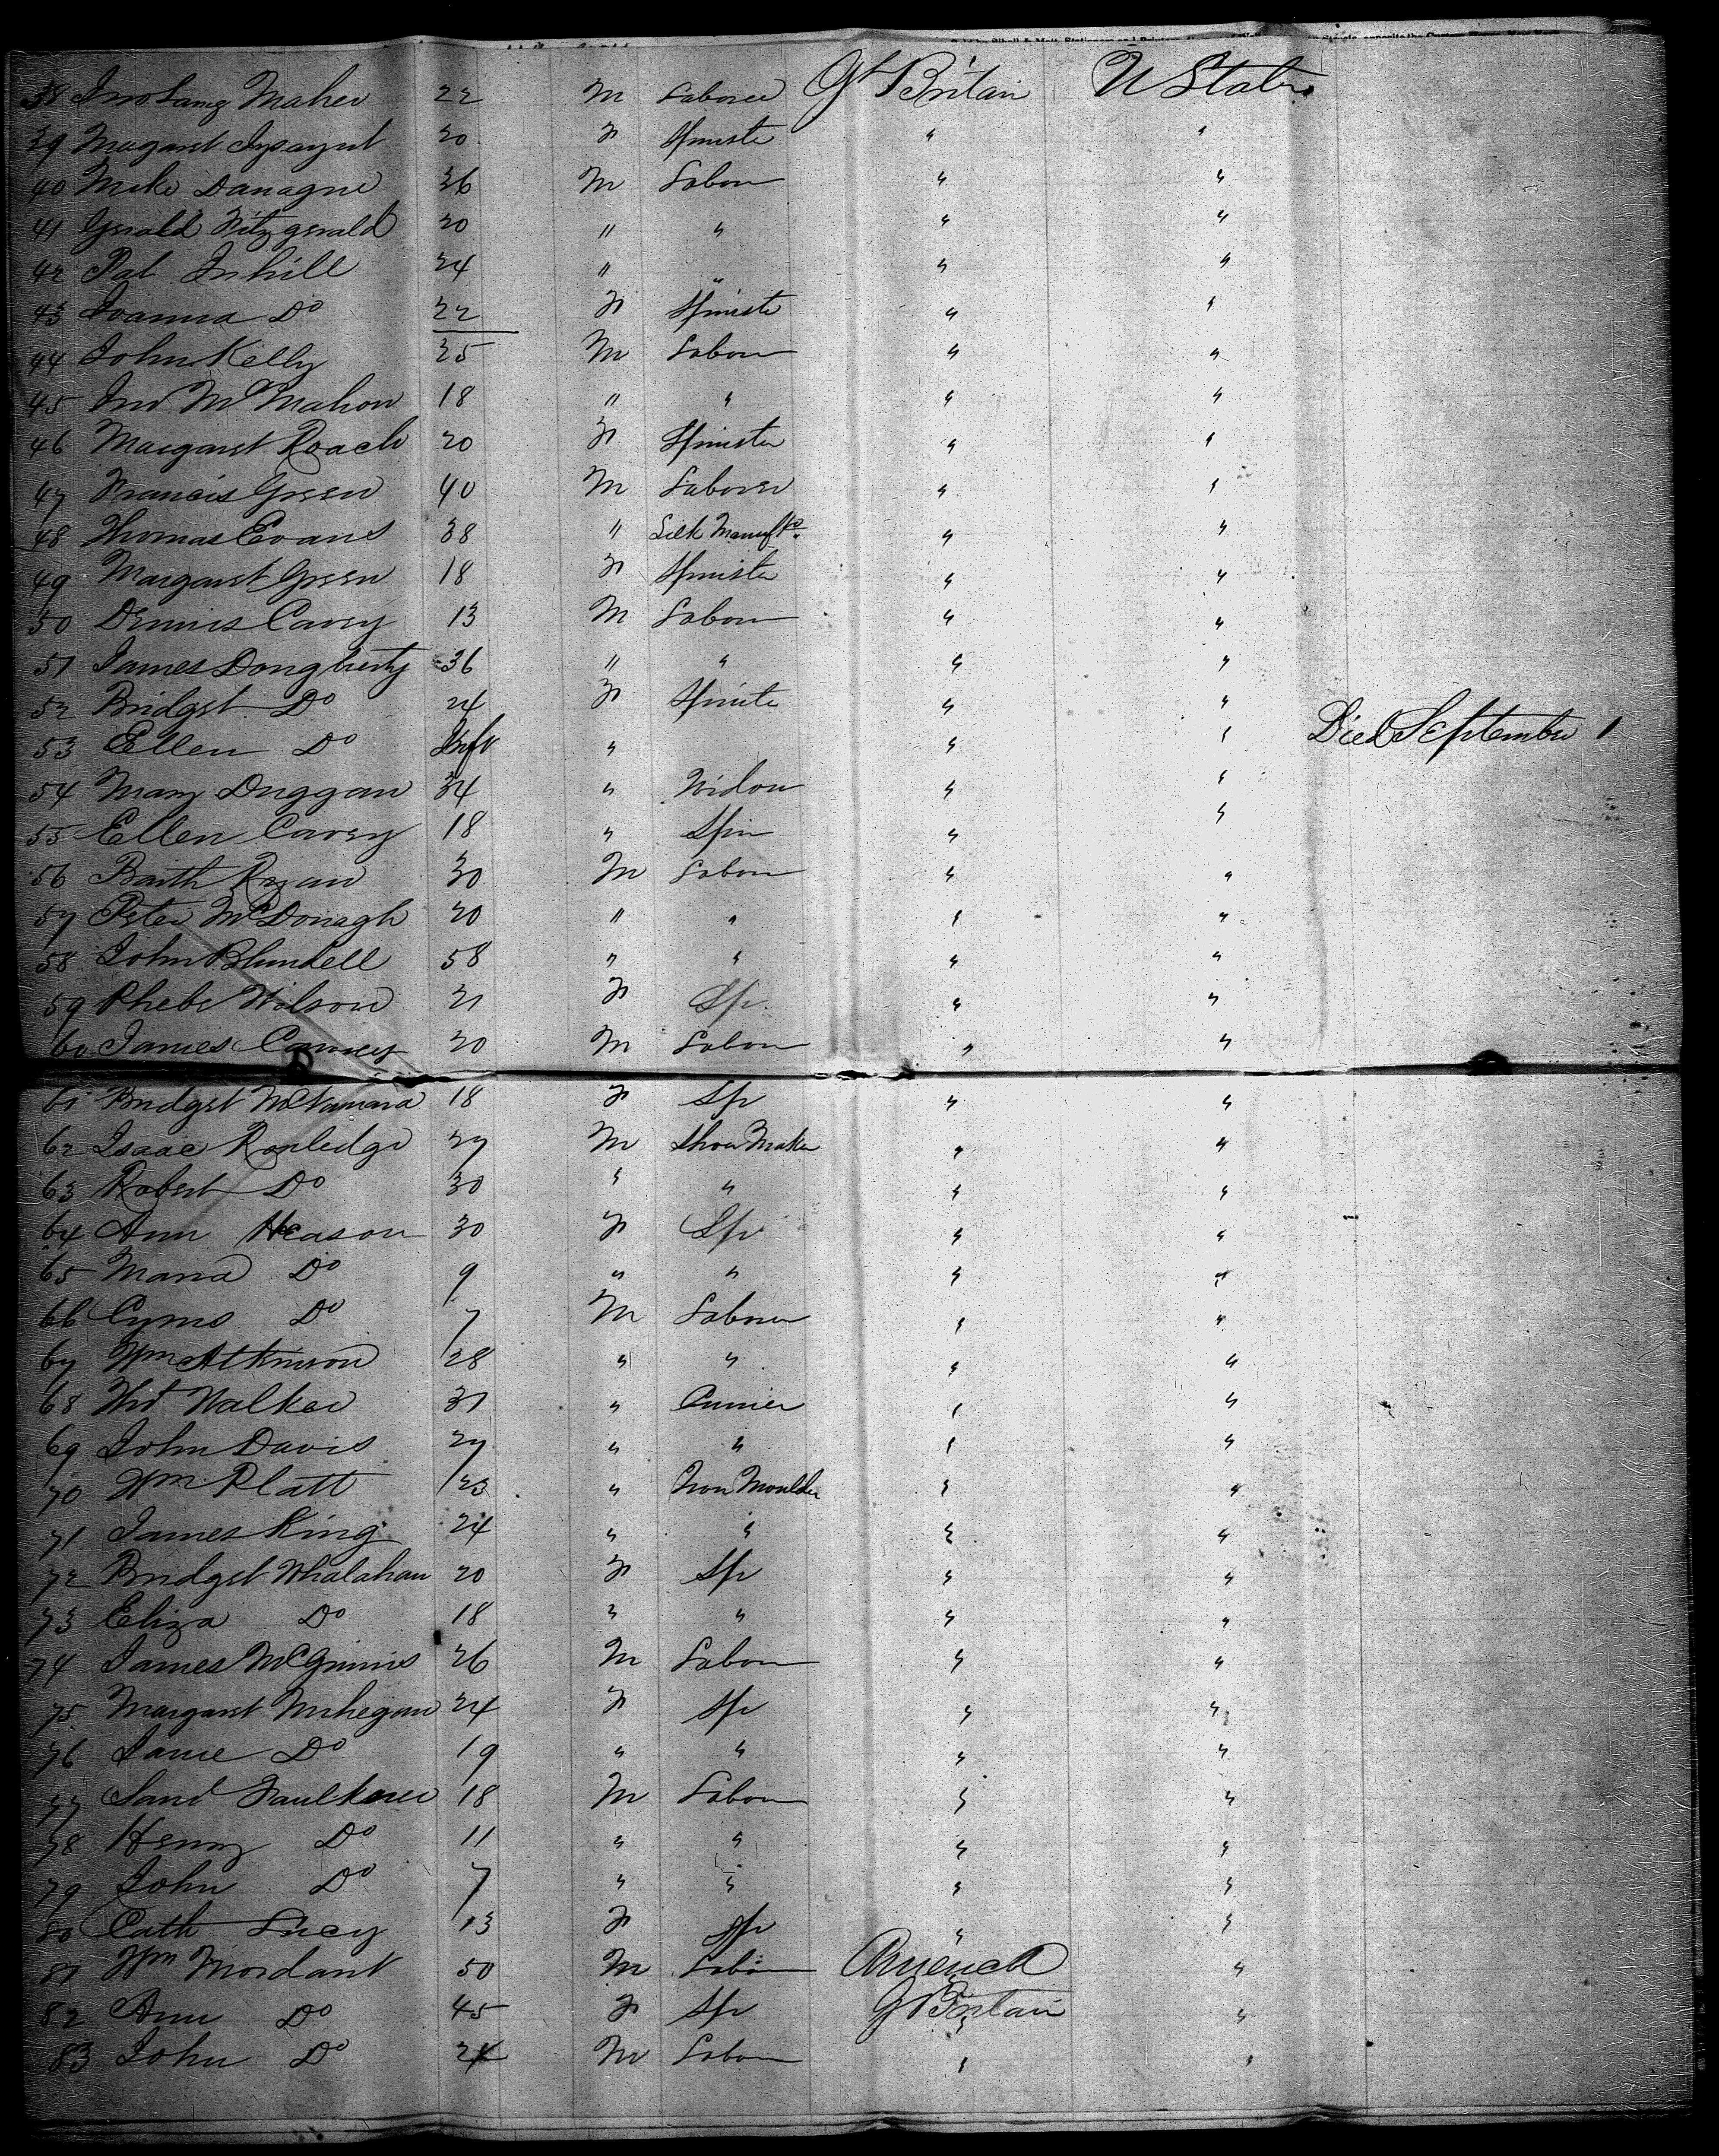 38 Jno Lang Maher 22 M Laborer Gt Britain U States
39 Margaret 20 F Spinster " "
40 Mike Danagne 36 M Labour " "
41 Gerald Fitzgerald 20 " " " "
42 Pat Inhill 24 " " " "
43 Joanna Do 22 F Spinste " "
44 John Kelly 25 M Labour " "
45 Jno McMahon 18 " " " "
46 Margaret Roach 20 F Spinster " "
47 Francis Green 40 M Laborer " "
48 Thomas Evans 38 " Silk Manuftr " "
49 Margaret Green 18 F Spinster " "
50 Dennis Carey 13 M Labour " "
51 James Dougherty 36 " " " "
52 Bridget Do 24 F Spinste " "
53 Ellen Do Inft " " " Died September 1
54 Mary Duggan 34 " Widow " "
55 Ellen Carey 18 " Spin " "
56 Barth Ryan 30 M Labour " "
57 Peter McDonagh 20 " " " "
58 John Blundell 58 " " " "
59 Phebe Wilson 21 F Sp. " "
60 James 20 M Labour " "
61 Bridget McNamara 18 F Sp " "
62 Isaac Rouledge 27 M Shoe Maker " "
63 Robert Do 30 " " " "
64 Ann Heason 30 F Sp " "
65 Maria Do 9 " " " "
66 Cyrus Do 7 M Labour " "
67 Wm Atkinson 28 " " " "
68 Walker 31 " Currier " "
69 John Davis 27 " " " "
70 Wm Platt 23 " Iron Moulder " "
71 James King 24 " " " "
72 Bridget Whalahan 20 F Sp " "
73 Eliza Do 18 " " " "
74 James McGinnis 26 M Labour " "
75 Margaret Mihegan 24 F Sp " "
76 Jane Do 19 " " " "
77 Saml Faulkner 18 M Labour " "
78 Henry Do 11 " " " "
79 John Do 7 " " " "
80 Cath Lucy 13 F Sp " "
81 Wm Mordant 50 M Labour America "
82 Ann Do 45 F Sp G Britain "
83 John Do 24 M Labour " "